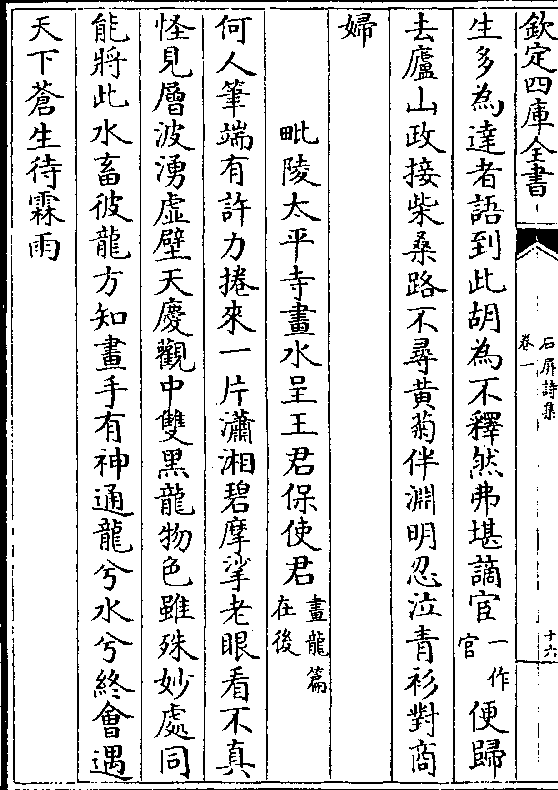 欽定四庫全書
石屏詩集
卷一
十六
生多為達者語到此胡為不釋然弗堪謫宦一作官便歸
去廬山政接柴桑路不尋黃菊伴淵明忍泣青衫對商
婦
毗陵太平寺畫水呈王君保使君畫龍篇在後
何人筆端有許力捲來一片瀟湘碧摩挲老眼看不真
怪見層波湧虛壁天慶觀中雙黑龍物色雖殊妙處同
能將此水畜彼龍方知畫手有神通龍兮水兮終會遇
天下蒼生待霖雨